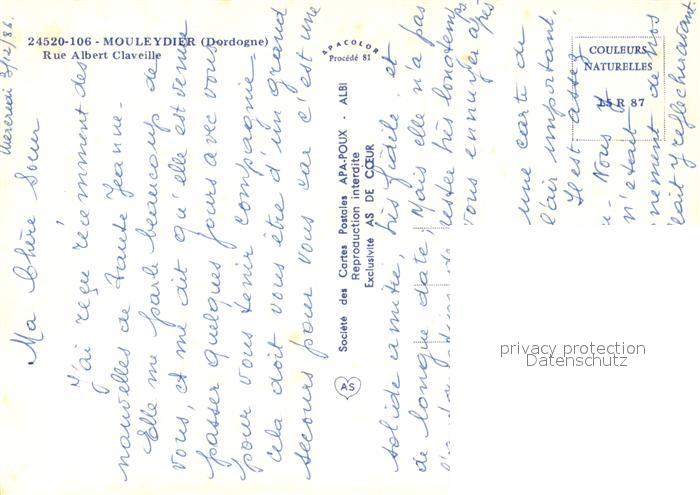 24520-106 - MOULEYDIER (Dordogne)
Rue Albert Claveille
APACOLOR
Procédé 81
COULEURS
NATURELLES
15 R 87
Société des Cartes Postales APA-POUX - ALBI
Reproduction interdite
Exclusivité AS DE CŒUR
AS
Mercredi 3/12/86.
Ma Chère Sœur
J'ai reçu récemment des
nouvelles de tante Jeanne.
Elle me parle beaucoup de
vous, et me dit qu'elle est venue
passer quelques jours avec vous
pour vous tenir compagnie.
Cela doit vous être d'un grand
secours pour vous car c'est une
solide amitié, très fidèle et
de longue date, Mais elle n'a pas
rester très longtemps
vous ennuyer après
une carte de
l'air important.
Il est assez
Nous y
n'était
nement de nos
était y réfléchissant
privacy protection
Datenschutz